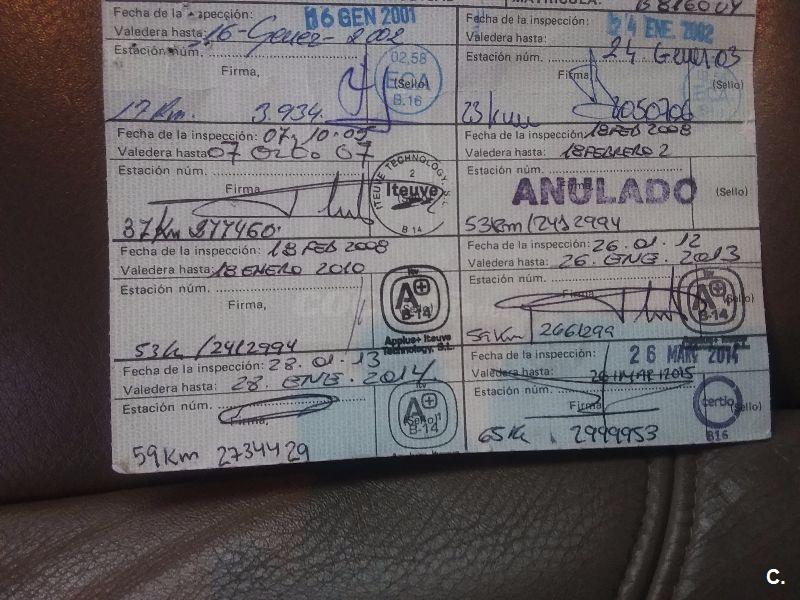 MATRICULA: B8160UY
Fecha de la inspección: 16 GEN 2001
Valedera hasta: 16-Gener-2002
Estación núm.
Firma,
02,58
ECA
(Sello)
B.16
17 Km. 3.934.
Fecha de la inspección: 24 ENE. 2002
Valedera hasta:
24 Gener 03
Estación núm.
Firma,
(Sello)
23 km 2050706
Fecha de la inspección: 07-10-05
Valedera hasta 07 07
Estación núm.
Firma,
ITEUVE TECHNOLOGY S.L.
2
Iteuve
B 14
37Km 277460.
Fecha de la inspección: 18 FEB 2008
Valedera hasta: 18 FEBRERO 2
Estación núm.
Firma,
ANULADO
(Sello)
53Km/2412994
Fecha de la inspección: 18 FEB 2008
Valedera hasta 18 ENERO 2010
Estación núm.
Firma,
Itv
A+
B-14
Applus+ Iteuve
Technology, S.L.
53K/2412994
Fecha de la inspección: 26.01.12
Valedera hasta: 26.ENE.2013
Estación núm.
Firma,
Itv
A+
B-14
(Sello)
Applus+ Iteuve
59Km 2661299
Fecha de la inspección: 28.01.13
Valedera hasta: 28.ENE.2014
Estación núm.
Firma,
Itv
A+
(Sello)
B-14
59Km 2734429
Fecha de la inspección: 26 MAR 2014
Valedera hasta: 26 MAR 2015
Estación núm.
Firma,
certio
(Sello)
B16
65K 2999953
C.